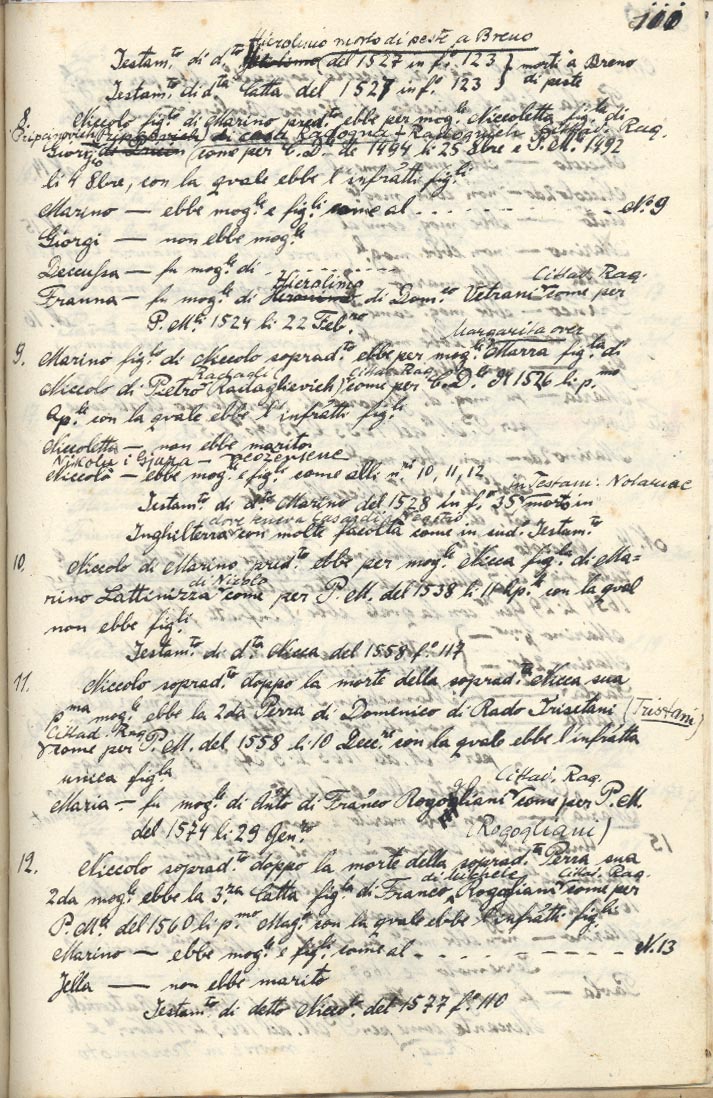 100
Hierolimo morto di peste a Breno
Testam.to di d.to del 1527 in f.o 123 } morti a Breno
Testam.to di d.ta Catta del 1527 in f.o 123 } di peste
8. Niccolo figl.o di Marino pred.to ebbe per mog.le Nicoletta figl.a di
Pripcinovich (Pripcinovich) di casa Radogna - Cittad. Rag.
Giorgi (come per C. D.te de 1494 li 25 8bre e P. M.te 1492
li 4 8bre, con la qvale ebbe l'infratti figl.i
Marino — ebbe mog.le e figl.i come al - - - - - - - - N.o 9
Giorgi — non ebbe mog.le
Deccussa — fu mog.le di - - - - - - -
Hierolimo Cittad. Rag.
Franna — fu mog.le di di Dom.co Vetrani come per
P. M.te 1524 li 22 Feb.ro
Margarita over
9. Marino figl.o di Niccolo soprad.to ebbe per mog.le Marra figl.a di
Radagli (Cittad. Rag.
Niccolo di Pietro Radaglievich) come per C. D.le d 1526 li p.mo
Ap.le con la qvale ebbe l'infratti figl.i
Niccoletta — non ebbe marito
Nikola i Gjura — neoženjene
Niccolò — ebbe mog.e e figl.i come alli n.ri 10, 11, 12
in Testam: Notariae
Testam.to di d.to Marino del 1528 in f.o 35 morto in
dove teneva casa di Negozio
Inghilterra con molte facoltà come in sud.o Testam.to
10. Niccolo di Marino pred.to ebbe per mog.le Nicca figl.a di Ma=
di Nicolo
rino Lattinizza come per P. M. del 1538 li 11 Ap.le con la qval
non ebbe figl.i
Testam.to di d.ta Nicca del 1558 f.o 117
11. Niccolo soprad.to doppo la morte della soprad.ta Nicca sua
p.ma mog.le ebbe la 2da Perra di Domenico di Rado Trisitani (Tristani)
Cittad. Rag.
come per P. M. del 1558 li 10 Decc.re con la qvale ebbe l'infratta
unica figl.a
Cittad. Rag.
Maria — fu mog.le di Anto di Franco Rogogliani come per P. M.
del 1574 li 29 Gen.ro (Rogogliani)
12. Niccolo soprad.to doppo la morte della soprad.ta Perra sua
di Michele Cittad. Rag.
2da mog.le ebbe la 3.za Catta figl.a di Franco Rogogliani come per
P. M.te del 1560 li p.mo Mag.o con la qvale ebbe l'infratti figl.i
Marino — ebbe mog.le e figl.i come al - - - - - - - - N. 13
Jella — non ebbe marito
Testam.to di detto Nicco.lo del 1577 f.o 110